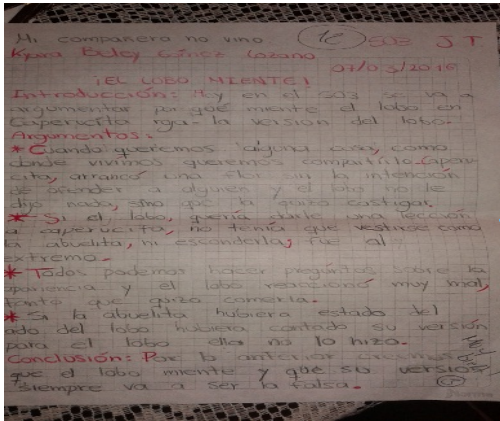 Mi compañera no vino 503 J T
Kyara Beley Gómez Lozano
07/03/2016
¡EL LOBO MIENTE!
Introducción: Hoy en el 503 se va a
argumentar por qué miente el lobo en
Caperucita roja - la versión del lobo.
Argumentos:
* Cuando queremos alguna cosa, como
donde vivimos queremos compartirlo. Caperu-
cita, arrancó una flor sin la intención
de ofender a alguien y el lobo no le
dijo nada, sino que la quizo castigar.
* Si el lobo, quería darle una lección
a caperucita, no tenía que vestirse como
la abuelita, ni esconderla, fue al
extremo.
* Todos podemos hacer preguntas sobre la
apariencia y el lobo reaccionó muy mal,
tanto que quizo comerla.
* Si la abuelita hubiera estado del
lado del lobo hubiera contado su versión
para el lobo ella no lo hizo.
Conclusión: Por lo anterior creemos
que el lobo miente y que su versión
siempre va a ser la falsa.